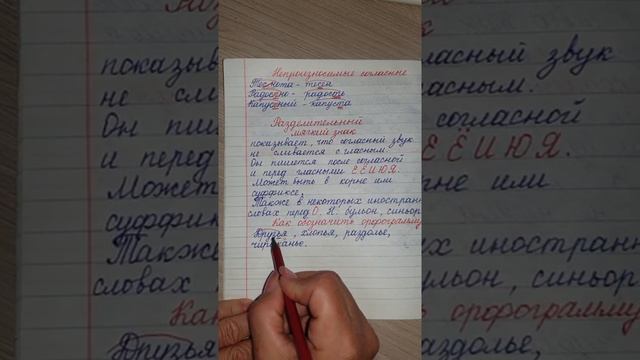 Непроизносимые согласные
Теснота - тесен
Радостно - радость
Капустный - капуста
Разделительный
мягкий знак
показывает, что согласный звук
не сливается с гласным.
Он пишется после согласной
и перед гласными Е Ё И Ю Я.
Может быть в корне или
суффиксе.
Также в некоторых иностран
словах перед О. Н. бульон, синьор
Как обозначить орфограмму
Друзья, хлопья, раздолье,